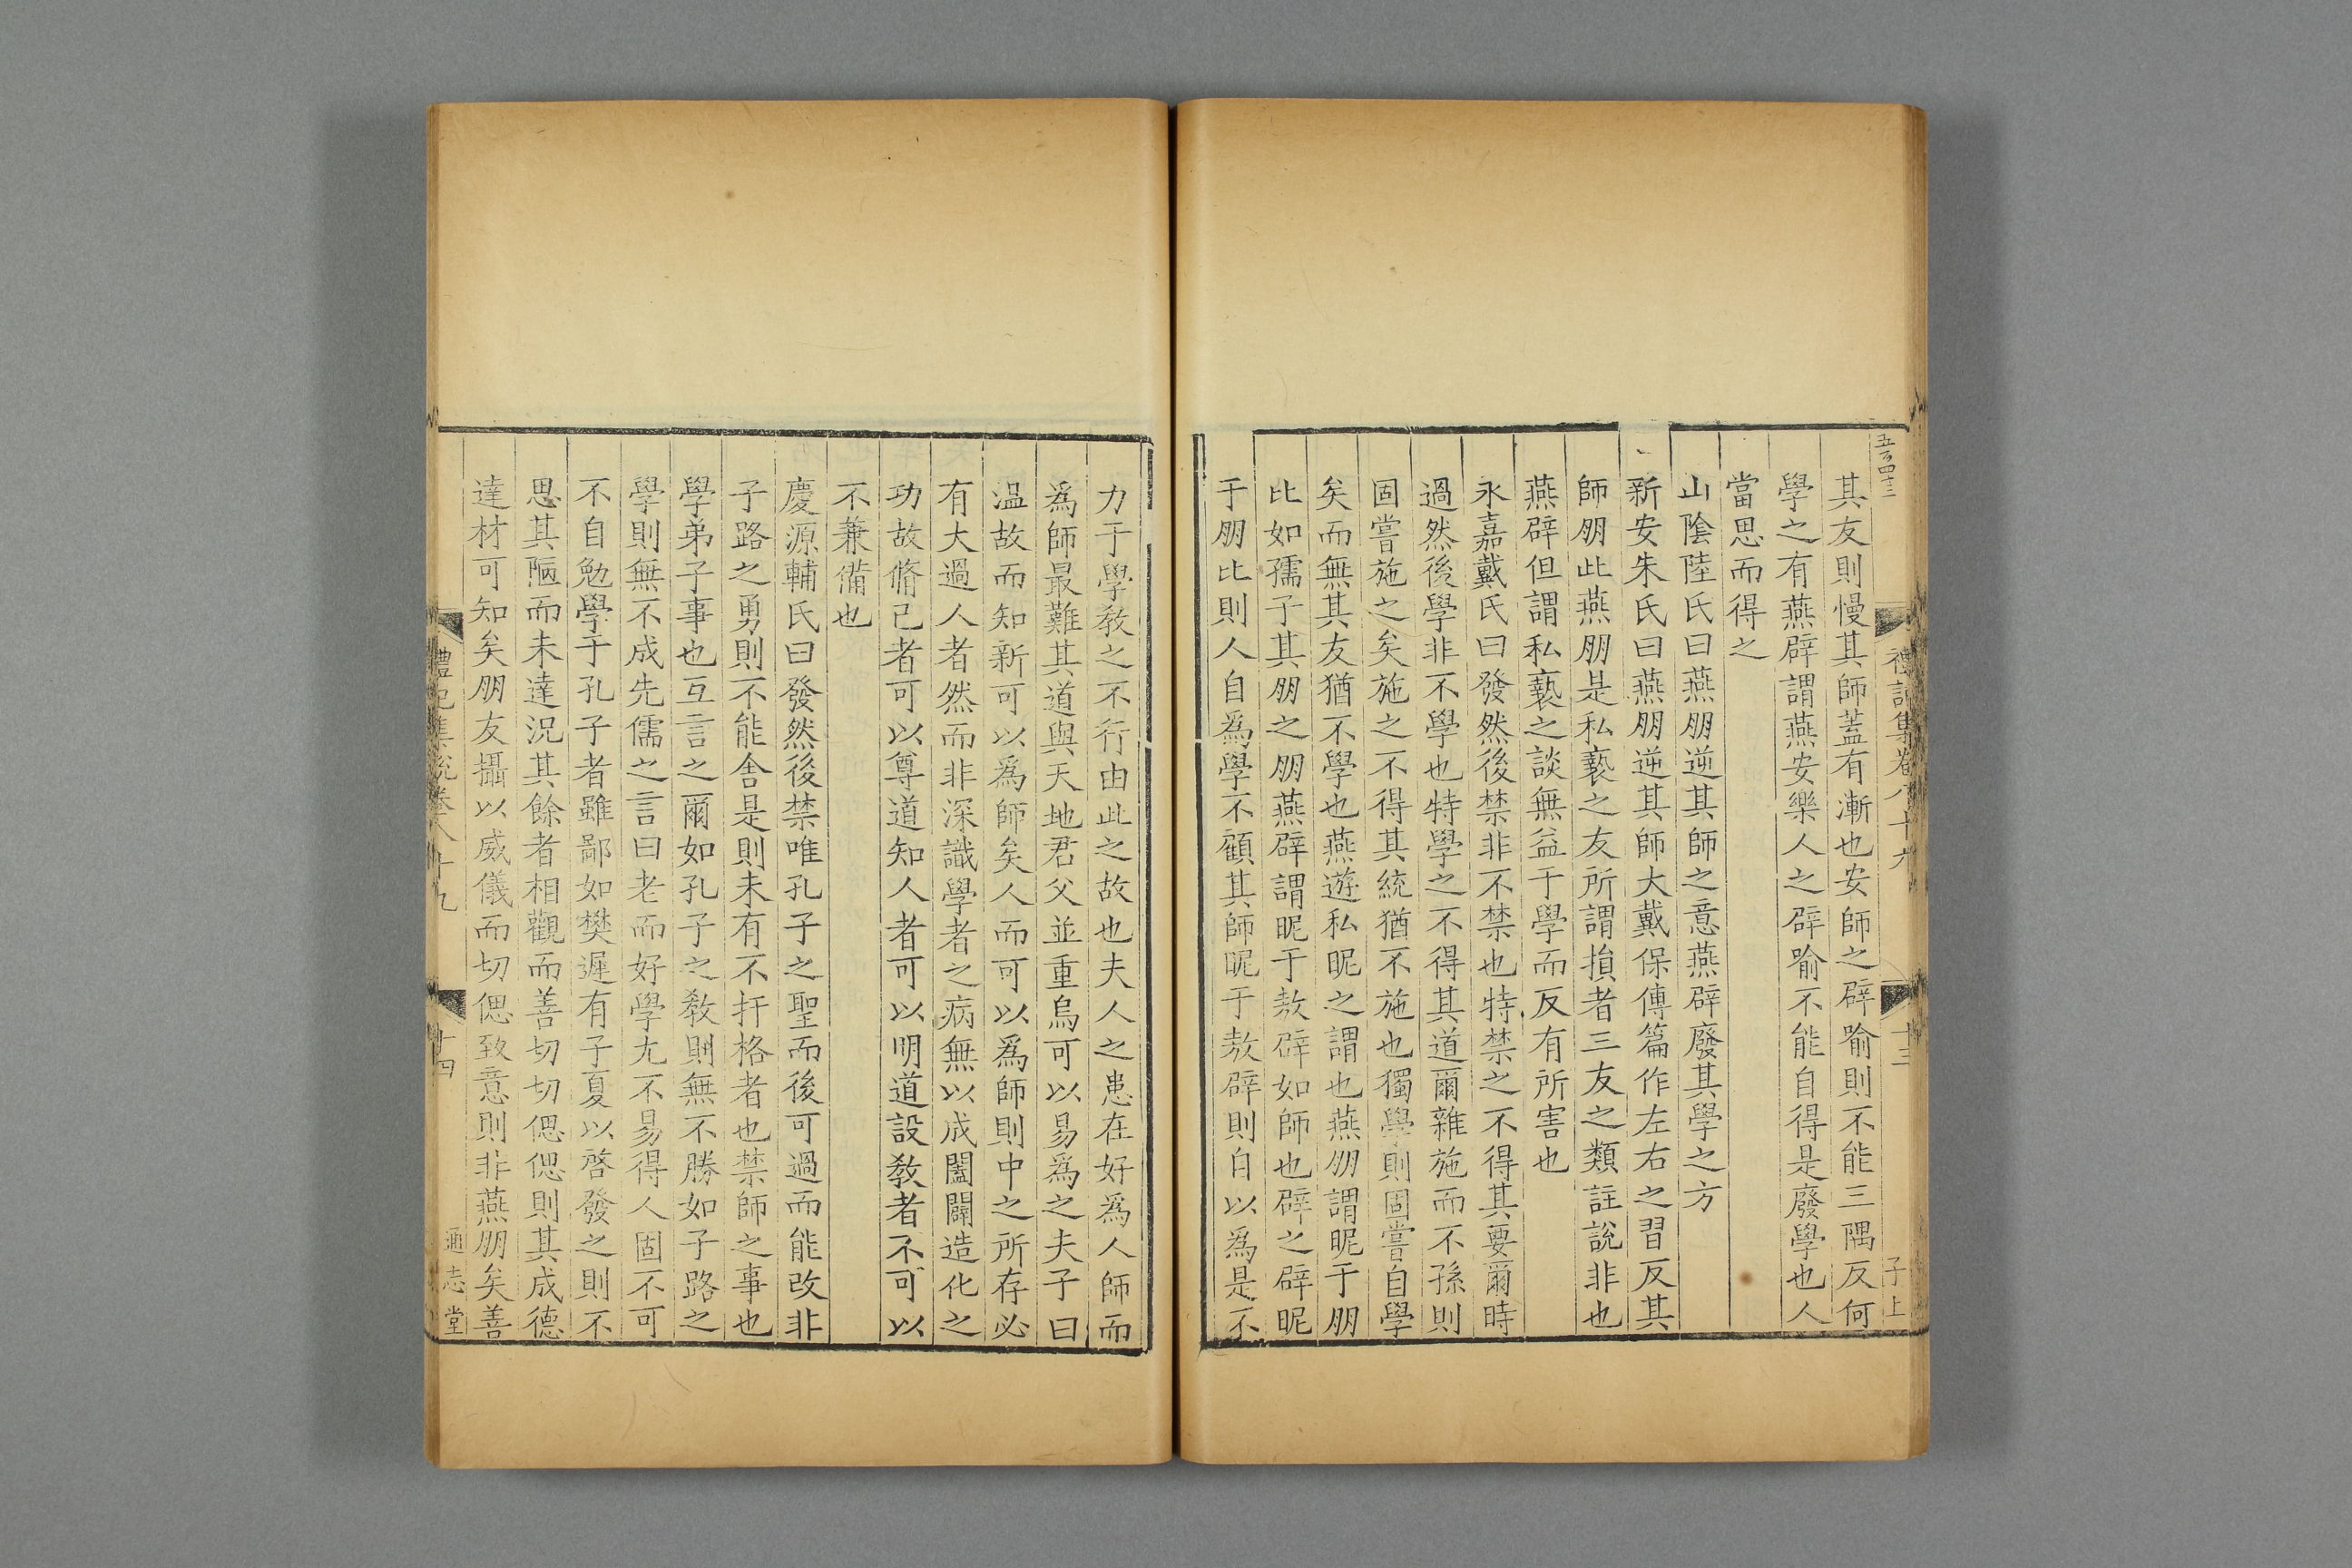 五百四十三
禮記集卷八十九
十三
子上
其友則慢其師蓋有漸也安師之辟喻則不能三隅反何
學之有燕辟謂燕安樂人之辟喻不能自得是廢學也人
當思而得之
山陰陸氏曰燕朋逆其師之意燕辟廢其學之方
新安朱氏曰燕朋逆其師大戴保傅篇作左右之習反其
師朋此燕朋是私褻之友所謂損者三友之類註說非也
燕辟但謂私褻之談無益于學而反有所害也
永嘉戴氏曰發然後禁非不禁也特禁之不得其要爾時
過然後學非不學也特學之不得其道爾雜施而不孫則
固嘗施之矣施之不得其統猶不施也獨學則固嘗自學
矣而無其友猶不學也燕遊私昵之謂也燕朋謂昵于朋
比如孺子其朋之朋燕辟謂昵于敖辟如師也辟之辟昵
于朋比則人自爲學不顧其師昵于敖辟則自以爲是不
力于學敎之不行由此之故也夫人之患在好爲人師而
爲師最難其道與天地君父並重烏可以易爲之夫子曰
溫故而知新可以爲師矣人而可以爲師則中之所存必
有大過人者然而非深識學者之病無以成闔闢造化之
功故脩己者可以尊道知人者可以明道設敎者不可以
不兼備也
慶源輔氏曰發然後禁唯孔子之聖而後可過而能改非
子路之勇則不能舍是則未有不扞格者也禁師之事也
學弟子事也互言之爾如孔子之敎則無不勝如子路之
學則無不成先儒之言曰老而好學尤不易得人固不可
不自勉學于孔子者雖鄙如樊遲有子夏以啓發之則不
思其陋而未達況其餘者相觀而善切切偲偲則其成德
達材可知矣朋友攝以威儀而切偲致意則非燕朋矣善
禮記集說卷八十九
十四
通志堂